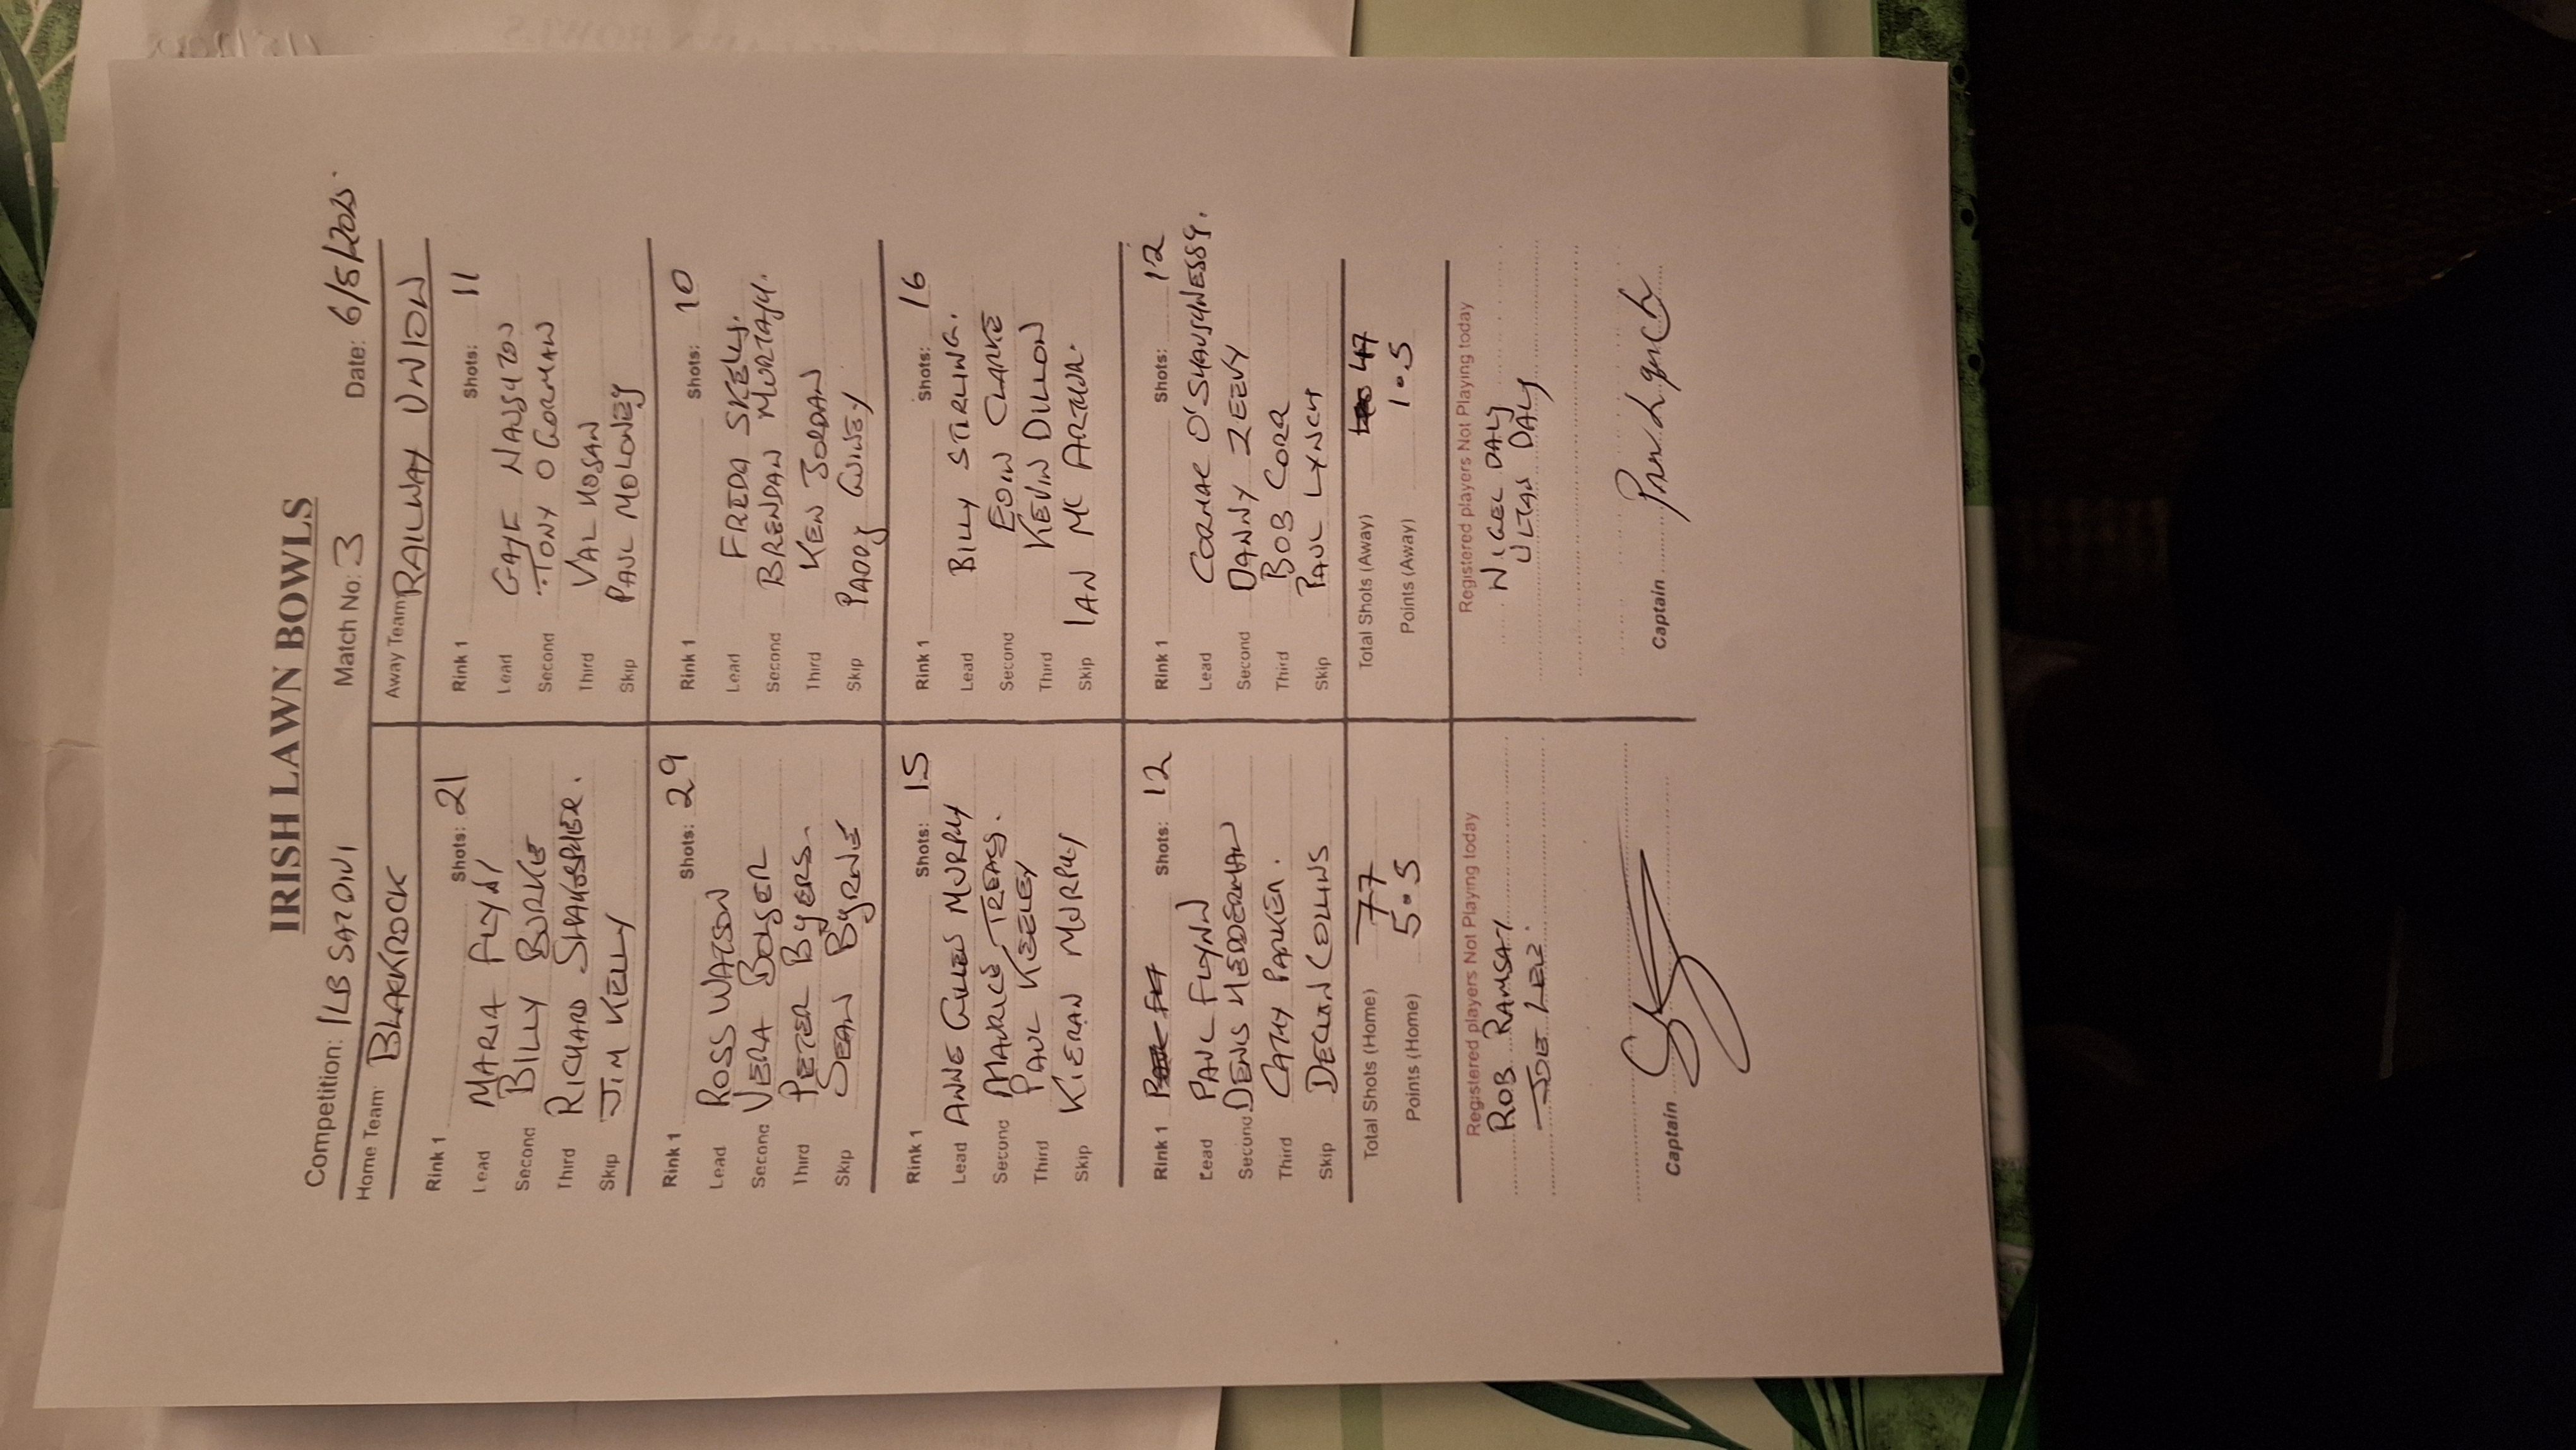 IRISH LAWN BOWLS
Competition: ILB SAT DIV 1 Match No: 3 Date: 6/5/2025.
Home Team: BLACKROCK
Away Team: RAILWAY UNION
Rink 1 Shots: 21
Lead MARIA FLYNN
Second BILLY BURKE
Third RICHARD
Skip JIM KELLY
Rink 1 Shots: 11
Lead GAYE
Second TONY O GORMAN
Third VAL HOGAN
Skip PAUL MOLONEY
Rink 1 Shots: 29
Lead ROSS WATSON
Second VERA BOLGER
Third PETER BYERS.
Skip SEAN BYRNE
Rink 1 Shots: 10
Lead FREDA SKELLY.
Second BRENDAN MURTAGH.
Third KEN JORDAN
Skip PADDY GUINEY
Rink 1 Shots: 15
Lead ANNE GILLEN MURPHY
Second MAURICE TREACY.
Third PAUL KEELEY
Skip KIERAN MURPHY
Rink 1 Shots: 16
Lead BILLY STIRLING.
Second EOIN CLARKE
Third KEVIN DILLON
Skip IAN MC ARTHUR.
Rink 1 Shots: 12
Lead PAUL FLYNN
Second DENIS HEDDERMAN
Third CATHY PARKER.
Skip DECLAN COLLINS
Rink 1 Shots: 12
Lead CORMAC O'SHAUGHNESSY.
Second DANNY
Third BOB CORR
Skip PAUL LYNCH
Total Shots (Home) 77
Points (Home) 5.5
Total Shots (Away) 47
Points (Away) 1.5
Registered players Not Playing today
ROB RAMSAY
JOE LEE.
Captain
Registered players Not Playing today
NIGEL DALY
ULTAN DALY
Captain Paul Lynch